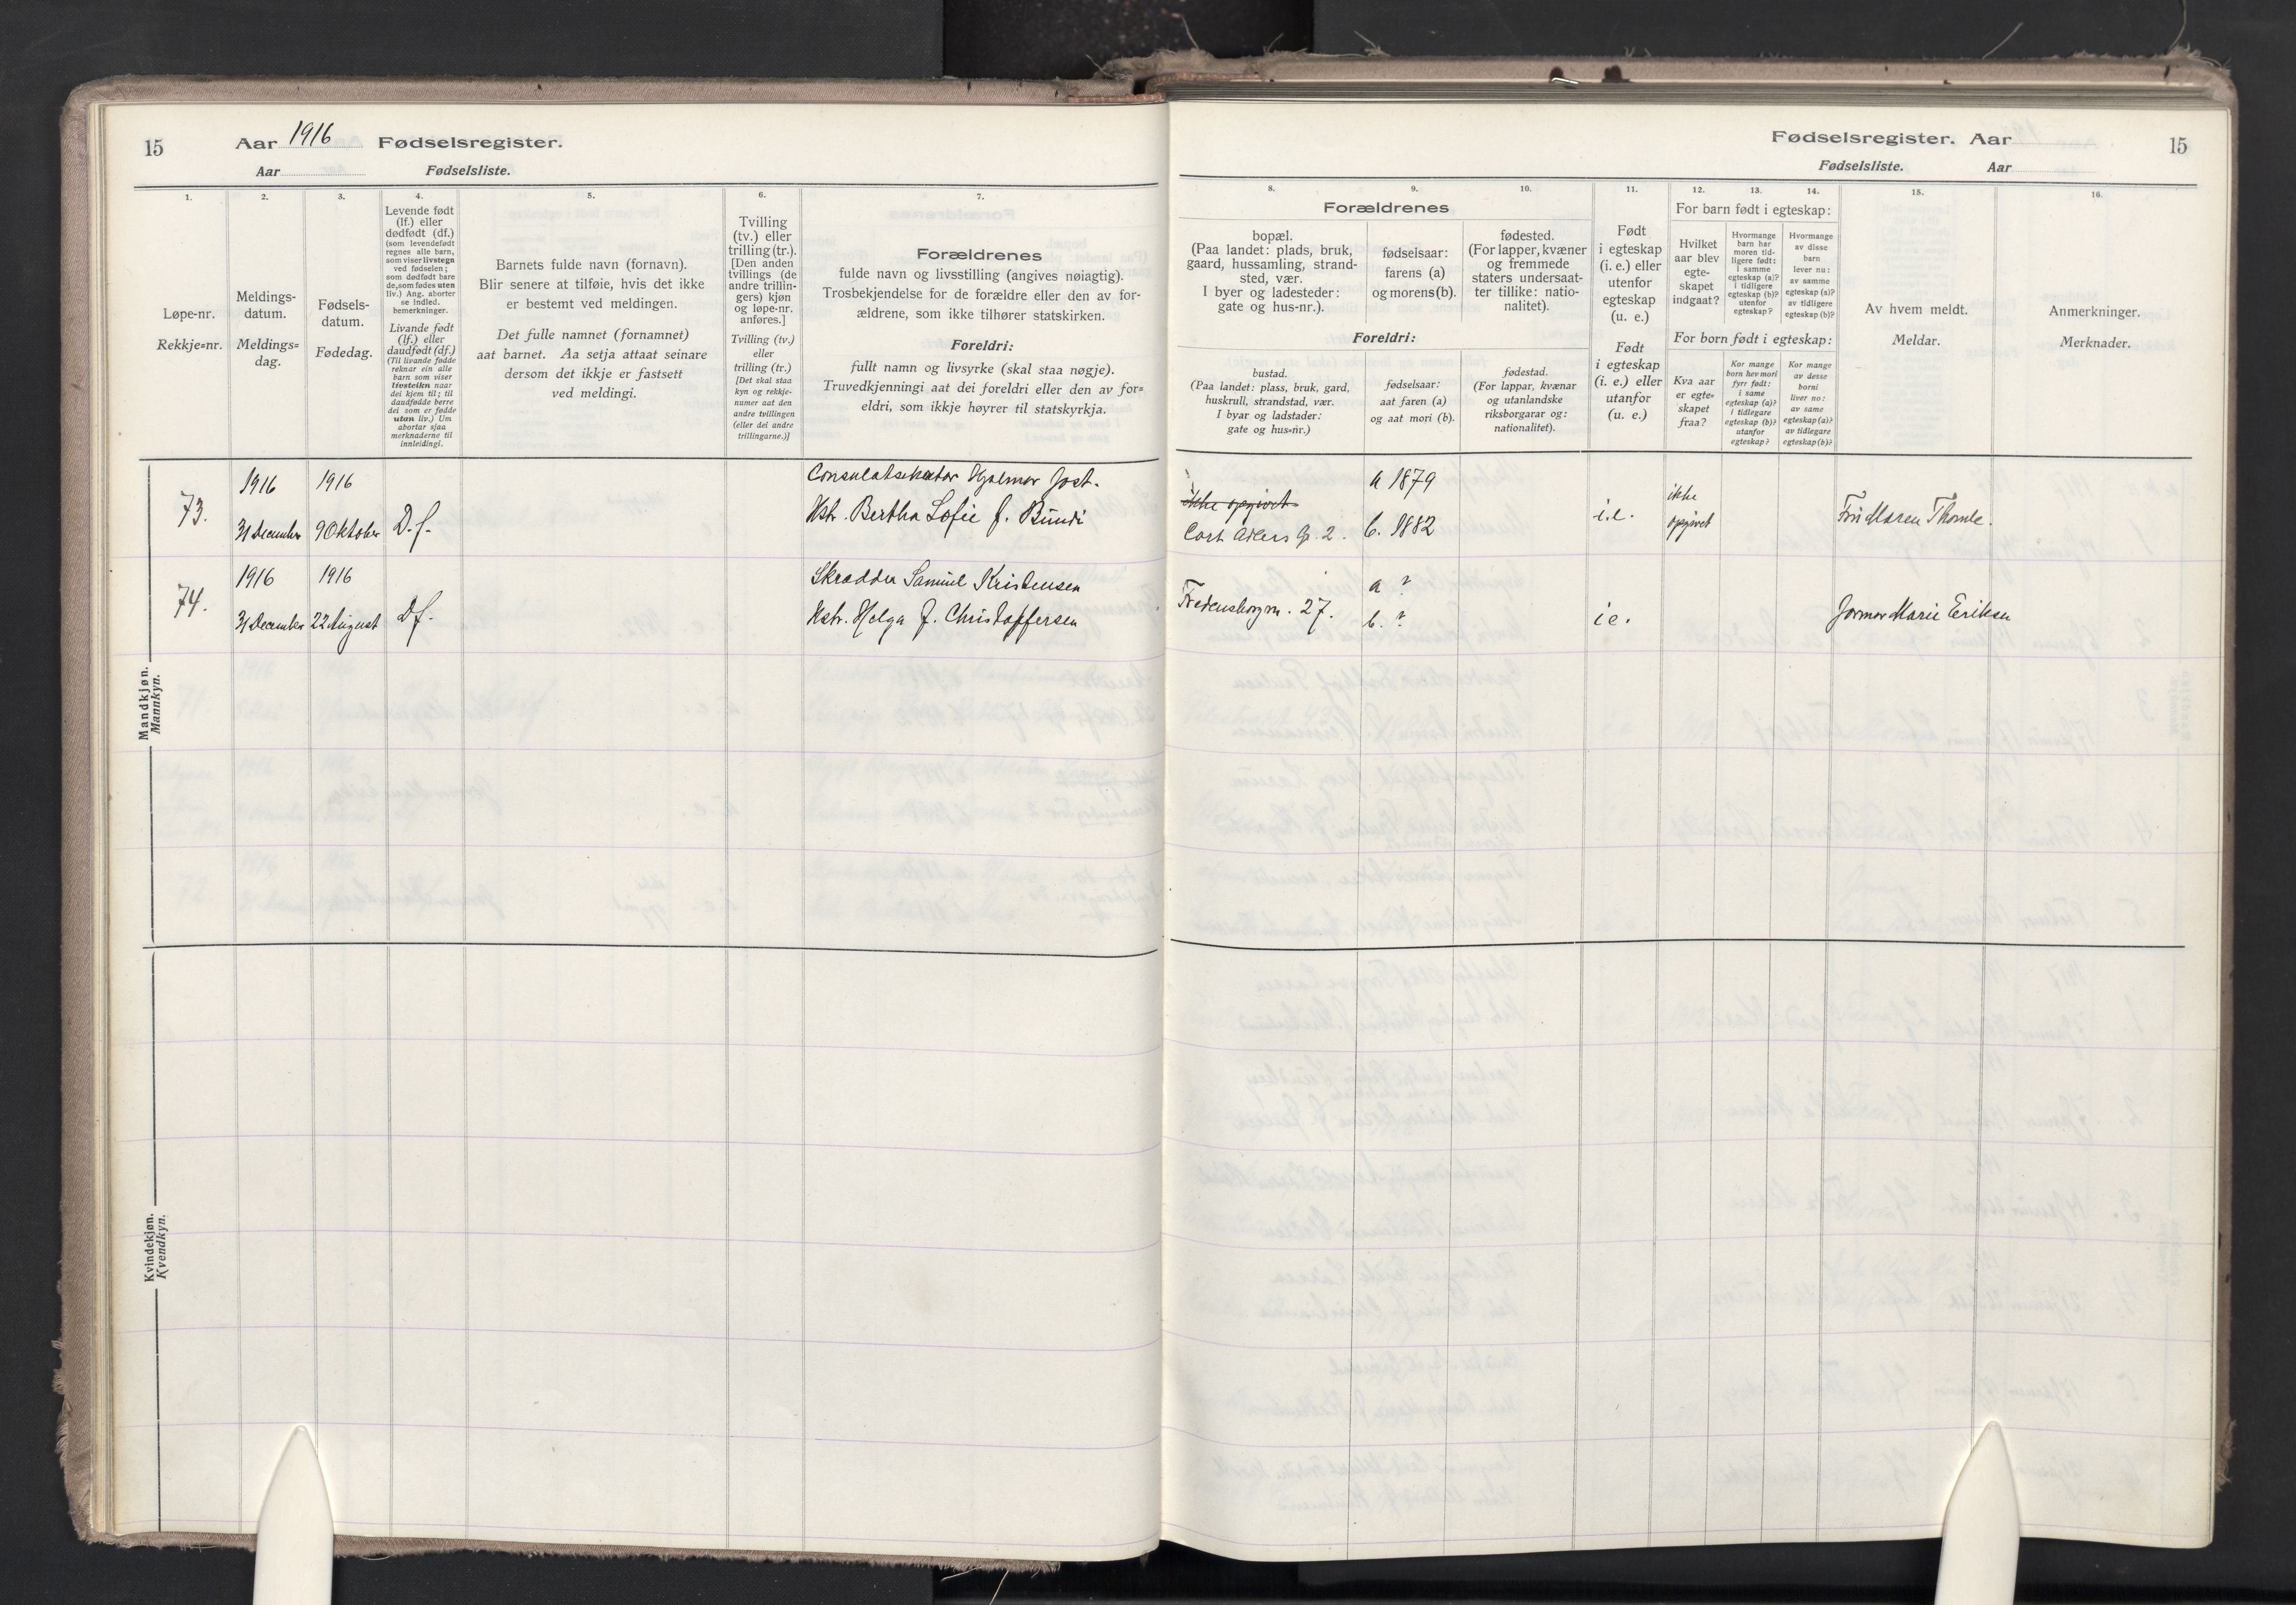 15
Aar 1916 Fødselsregister.
Aar Fødselsliste.
1.
2.
3.
4.
5.
6.
7.
Løpe-nr.
Rekkje=nr.
Meldings-
datum.
Meldings=
dag.
Fødsels-
datum.
Fødedag.
Levende født
(lf.) eller
dødfødt (df.)
(som levendefødt
regnes alle barn,
som viser livstegn
ved fødselen;
som dødfødt bare
de, som fødes uten
liv.) Ang. aborter
se indled.
bemerkninger.
Livande født
(lf.) eller
daudfødt (df.)
(Til livande fødde
reknar ein alle
barn som viser
livsteikn naar
dei kjem til; til
daudfødde berre
dei som er fødde
utan liv.) Um
abortar sjaa
merknaderne til
innleidingi.
Barnets fulde navn (fornavn).
Blir senere at tilføie, hvis det ikke
er bestemt ved meldingen.
Det fulle namnet (fornamnet)
aat barnet. Aa setja attaat seinare
dersom det ikkje er fastsett
ved meldingi.
Tvilling
(tv.) eller
trilling (tr.).
[Den anden
tvillings (de
andre trillin-
gers) kjøn
og løpe-nr.
anføres.]
Tvilling (tv.)
eller
trilling (tr.)
[Det skal staa
kyn og rekkje-
numer aat den
andre tvillingen
(eller dei andre
trillingarne.)]
Forældrenes
fulde navn og livsstilling (angives nøiagtig).
Trosbekjendelse for de forældre eller den av for-
ældrene, som ikke tilhører statskirken.
Foreldri:
fullt namn og livsyrke (skal staa nøgje).
Truvedkjenningi aat dei foreldri eller den av for=
eldri, som ikkje høyrer til statskyrkja.
Mandkjøn.
Mannkyn.
73.
1916
31 December
1916
9 Oktober
D.f.
Consulatsekretær Hjalmar Jost.
Hstr. Bertha Sofie f. Bündi
74.
1916
31 December
1916
22 August
Df.
Skrædder Samuel Kristensen
Hstr. Helga f. Christoffersen
Kvindekjøn.
Kvendkyn.
Fødselsregister. Aar
15
Fødselsliste. Aar
8.
9.
10.
11.
12.
13.
14.
15.
16.
Forældrenes
bopæl.
(Paa landet: plads, bruk,
gaard, hussamling, strand-
sted, vær.
I byer og ladesteder:
gate og hus-nr.).
fødselsaar:
farens (a)
og morens (b).
fødested.
(For lapper, kvæner
og fremmede
staters undersaat-
ter tillike: natio-
nalitet).
Foreldri:
bustad.
(Paa landet: plass, bruk, gard,
huskrull, strandstad, vær.
I byar og ladstader:
gate og hus=nr.)
fødselsaar:
aat faren (a)
og aat mori (b).
fødestad.
(For lappar, kvænar
og utanlandske
riksborgarar og:
nationalitet).
Født
i egteskap
(i. e.) eller
utenfor
egteskap
(u. e.)
Født
i egteskap
(i. e.) eller
utanfor
(u. e.)
For barn født i egteskap:
Hvilket
aar blev
egte-
skapet
indgaat?
Hvormange
barn har
moren tid-
ligere født:
i samme
egteskap (a)?
i tidligere
egteskap (b)?
utenfor
egteskap?
Hvormange
av disse
barn
lever nu:
av samme
egteskap (a)?
av tidligere
egteskap (b)?
For born født i egteskap:
Kva aar
er egte=
skapet
fraa?
Kor mange
born hev mori
fyrr født:
i same
egteskap (a)?
i tidlegare
egteskap (b)?
utanfor
egteskap?
Kor mange
av desse
borni
liver no:
av same
egteskap (a)?
av tidlegare
egteskap (b)?
Av hvem meldt.
Meldar.
Anmerkninger.
Merknader.
ikke opgivet
Cort Adlers g. 2.
a 1879
b. 1882
i.e.
ikke
opgivet
Fru Maren Thomle.
Fredensborgv. 27.
a ?
b. ?
i e.
Jormor Marie Eriksen